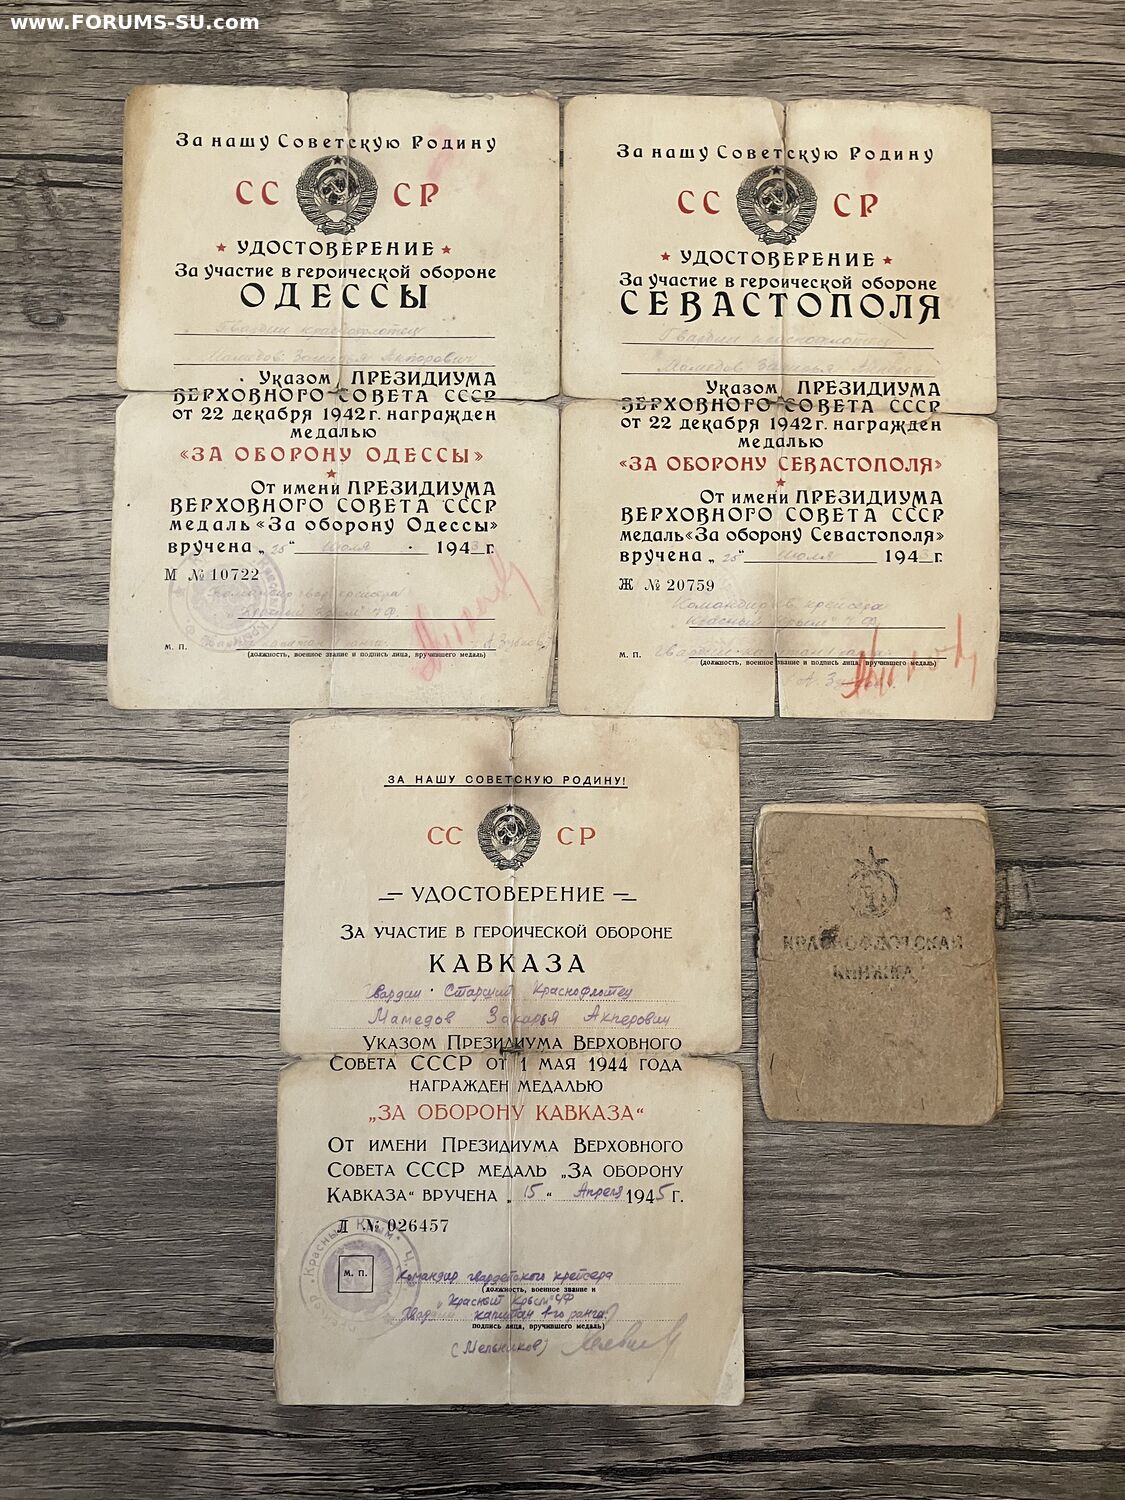 www.FORUMS-SU.com
За нашу Советскую Родину
СС СР
УДОСТОВЕРЕНИЕ
За участие в героической обороне
ОДЕССЫ
Гвардии краснофлотец
Мамедов Закарья Акперович
Указом ПРЕЗИДИУМА
ВЕРХОВНОГО СОВЕТА СССР
от 22 декабря 1942 г. награжден
медалью
«ЗА ОБОРОНУ ОДЕССЫ»
От имени ПРЕЗИДИУМА
ВЕРХОВНОГО СОВЕТА СССР
медаль «За оборону Одессы»
вручена „25“ июля 1943 г.
М № 10722
Командир гвар. крейсера
"Красный Крым" ЧФ.
м. п.
(должность, военное звание и подпись лица, вручившего медаль)
За нашу Советскую Родину
СС СР
УДОСТОВЕРЕНИЕ
За участие в героической обороне
СЕВАСТОПОЛЯ
Гвардии краснофлотец
Мамедов Закарья
Указом ПРЕЗИДИУМА
ВЕРХОВНОГО СОВЕТА СССР
от 22 декабря 1942 г. награжден
медалью
«ЗА ОБОРОНУ СЕВАСТОПОЛЯ»
От имени ПРЕЗИДИУМА
ВЕРХОВНОГО СОВЕТА СССР
медаль «За оборону Севастополя»
вручена „25“ июля 1943 г.
Ж № 20759
Командир гв. крейсера
"Красный Крым" ЧФ
м. п. Гвардии капитан 1 ранга
(должность, военное звание и подпись лица, вручившего медаль)
ЗА НАШУ СОВЕТСКУЮ РОДИНУ!
СС СР
— УДОСТОВЕРЕНИЕ —
ЗА УЧАСТИЕ В ГЕРОИЧЕСКОЙ ОБОРОНЕ
КАВКАЗА
Гвардии Старший Краснофлотец
Мамедов Закарья Акперович
УКАЗОМ ПРЕЗИДИУМА ВЕРХОВНОГО
СОВЕТА СССР ОТ 1 МАЯ 1944 ГОДА
НАГРАЖДЕН МЕДАЛЬЮ
„ЗА ОБОРОНУ КАВКАЗА“
ОТ ИМЕНИ ПРЕЗИДИУМА ВЕРХОВНОГО
СОВЕТА СССР МЕДАЛЬ „ЗА ОБОРОНУ
КАВКАЗА“ ВРУЧЕНА „15“ Апреля 1945 г.
Л № 026457
М. П.
Командир гвардейского крейсера
(должность, военное звание и
"Красный Крым" ЧФ
Гвардии капитан 1-го ранга
подпись лица, вручившего медаль)
(Мельников)
КРАСНОФЛОТСКАЯ
КНИЖКА